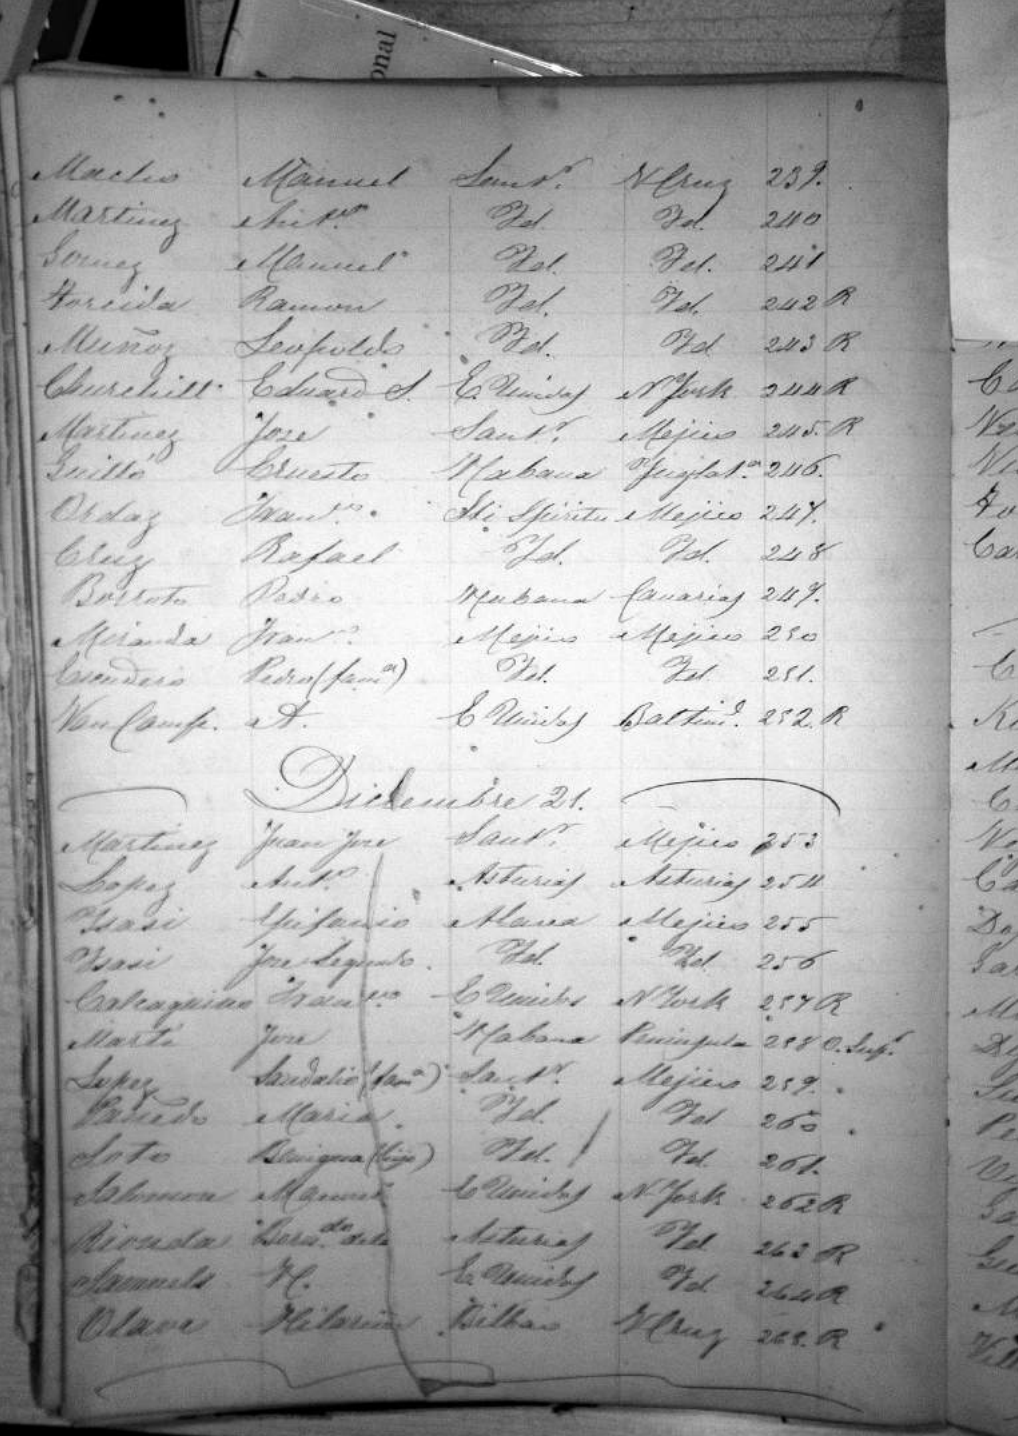 onal
Macho Manuel Sant.r VCruz 239.
Martinez Ant.o Id. Id. 240
Gomez Manuel Id. Id. 241
Ramon Id. Id. 242 R
Muñoz Leopoldo Id. Id 243 R
Churchill Eduard S. E. Unidos N York 244 R
Martinez Jose Sant.r Mejico 245. R
Guilló Ernesto Habana Inglat.a 246.
Ordaz Fran.co Sti Spiritu Mejico 247.
Cruz Rafael Id. Id. 248
Borroto Pedro Habana Canarias 249.
Miranda Fran.co Mejico Mejico 250
Escudero Pedro (fam.a) Id. Id 251.
Van Camp. A. E Unidos Baltim.e 252. R
Diciembre 21.
Martinez Juan Jose Sant.r Mejico 253
Lopez Ant.o Asturias Asturias 254
Isasi Epifanio Alava Mejico 255
Isasi Jose Segundo. Id. Id 256
Calcagnino Fran.co E Unidos N York 257 R
Marti Jose Habana Peninsula 258 O. Sup.r
Lopez Sandalio (fam.a) Sant.r Mejico 259.
Maria Id. Id 260
Soto Benigna (hija) Id. Id. 261.
Salomon Manuel E Unidos N. York 262 R
Rionda Asturias Id 263 R
Samuels H. E Unidos Id 264 R
Olave Hilarion Bilbao VCruz 265. R